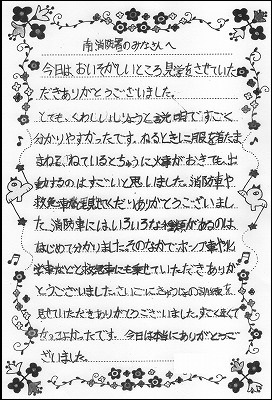 南消防署のみなさんへ
今日は、おいそがしいところ見学をさせていた
だきありがとうございました。
とても、くわしいしりょうと説明ですごく
分かりやすかったです。ねるときに服を着たま
まねて、ねているとちゅうに火事がおきても出
動するのはすごいと思いました。消防車や
救急車を見せてくださりありがとうございまし
た。消防車には、いろいろな種類があるのは
はじめて分かりました。そのなかでポンプ車や化
学車などと救急車にも乗せていただきありが
とうございました。さいごにきゅうじょの
見せていただきありがとうございました。すごくよくて
かっこよかったです。今日は本当にありがとうござ
いました。